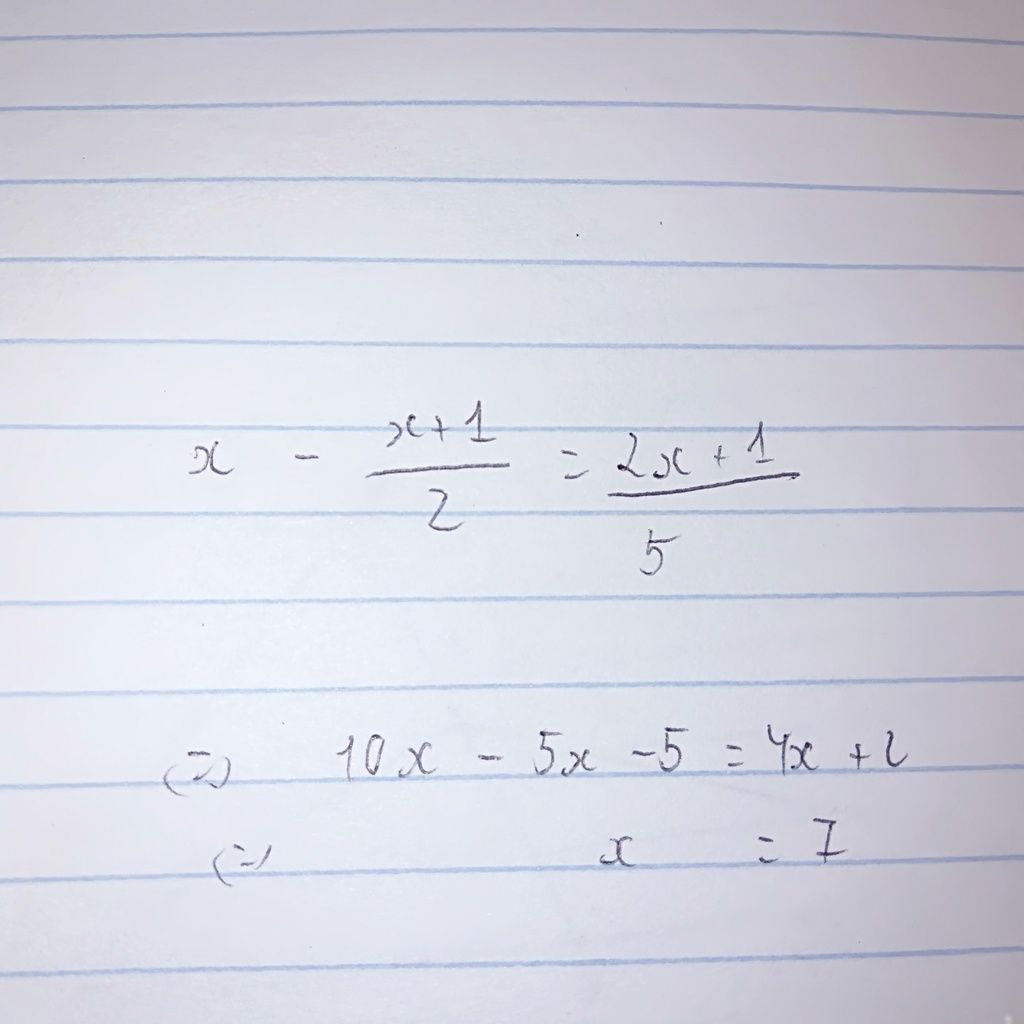 x - \frac{x+1}{2} = \frac{2x+1}{5}
(=) 10x - 5x - 5 = 4x + 2
(=) x = 7